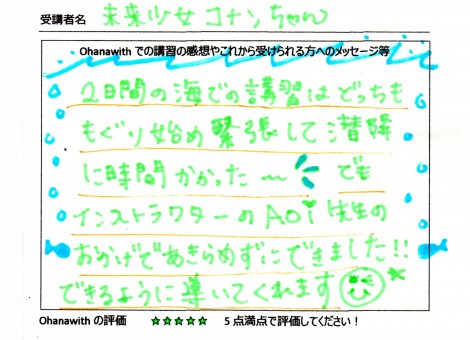 受講者名 未来少女コナンちゃん
Ohanawith での講習の感想やこれから受けられる方へのメッセージ等
2日間の海での講習はどっちも
もぐり始め緊張して潜降
に時間かかった〜 でも
インストラクターのAoi先生の
おかげであきらめずにできました!!
できるように導いてくれます
Ohanawith の評価 ☆☆☆☆☆ 5点満点で評価してください!